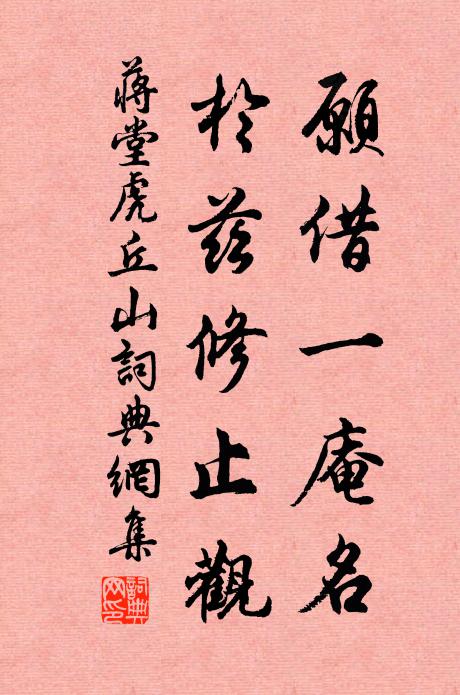 願借一庵名
於茲修止觀
蔣堂虎丘山詞典網集
詞典網印